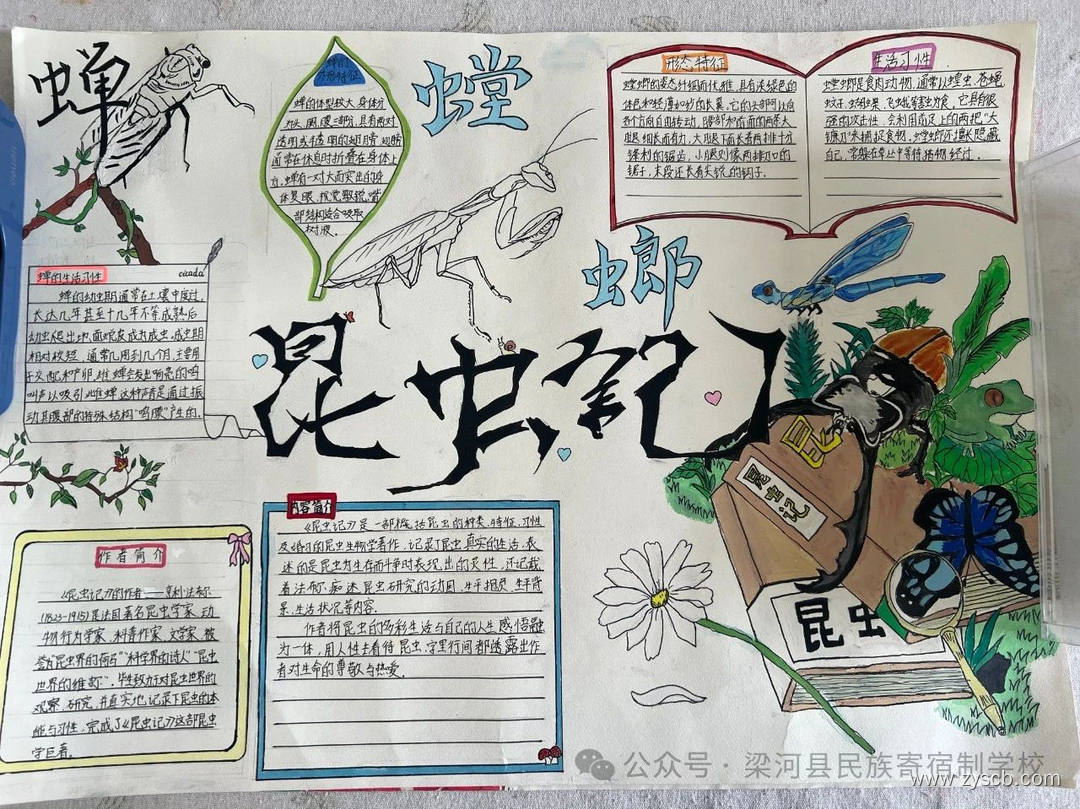 蝉
蝉的
外形特征
蝉的体型较大，身体分
为头、胸、腹三部分，具有两对
透明或半透明的翅膀，翅膀
通常在休息时折叠在身体上
方，蝉有一对大而突出的身
体复眼，视觉敏锐，嘴
部结构适合吸取
树液。
螳
螂
形态特征
螳螂的姿态
各个方向自由转动，
腿细长而有力，大腿下面长着两排十分
锋利的锯齿，小腿则像两排刀口的
锯子，末段还长着尖锐的钩子。
生活习性
螳螂是食肉动物，通常以蝗虫、苍蝇、
强的攻击性，会利用前足上的两把“大
镰刀”来捕捉食物，螳螂还擅长隐藏
自己，常躲在草丛中等待猎物经过。
蝉的生活习性
cicada
蝉的幼虫期通常在土壤中度过，
长达几年甚至十几年不等，成熟后
幼虫爬出地面蜕皮成为成虫，成虫期
相对较短，通常几周到几个月，主要用
于交配和产卵，雄蝉会发出响亮的鸣
叫声以吸引雌蝉，这种声音是通过振
动其腹部的特殊结构“鸣腰”产生的。
昆虫记
昆
昆虫记
昆虫
内容简介
《昆虫记》是一部概括昆虫的种类、特征、习性
及婚习的昆虫生物学著作，记录了昆虫真实的生活，表
述的是昆虫为生存而斗争时表现出的灵性，还记载
着法布尔痴迷昆虫研究的动因、生平抱负、生平背
景、生活状况等内容。
作者将昆虫的多彩生活与自己的人生感悟融
为一体，用人性去看待昆虫，字里行间都透露出作
者对生命的尊敬与热爱。
作者简介
《昆虫记》的作者——亨利·法布尔
(1823-1915)是法国著名昆虫学家、动
物行为学家、科普作家、文学家，被
誉为“昆虫界的荷马”“科学界的诗人”“昆虫
世界的维吉尔”，毕生致力于对昆虫世界的
观察、研究，并真实地记录下昆虫的本
能与习性，完成了《昆虫记》这部昆虫
学巨著。
公众号·梁河县民族寄宿制学校
www.zyscb.com